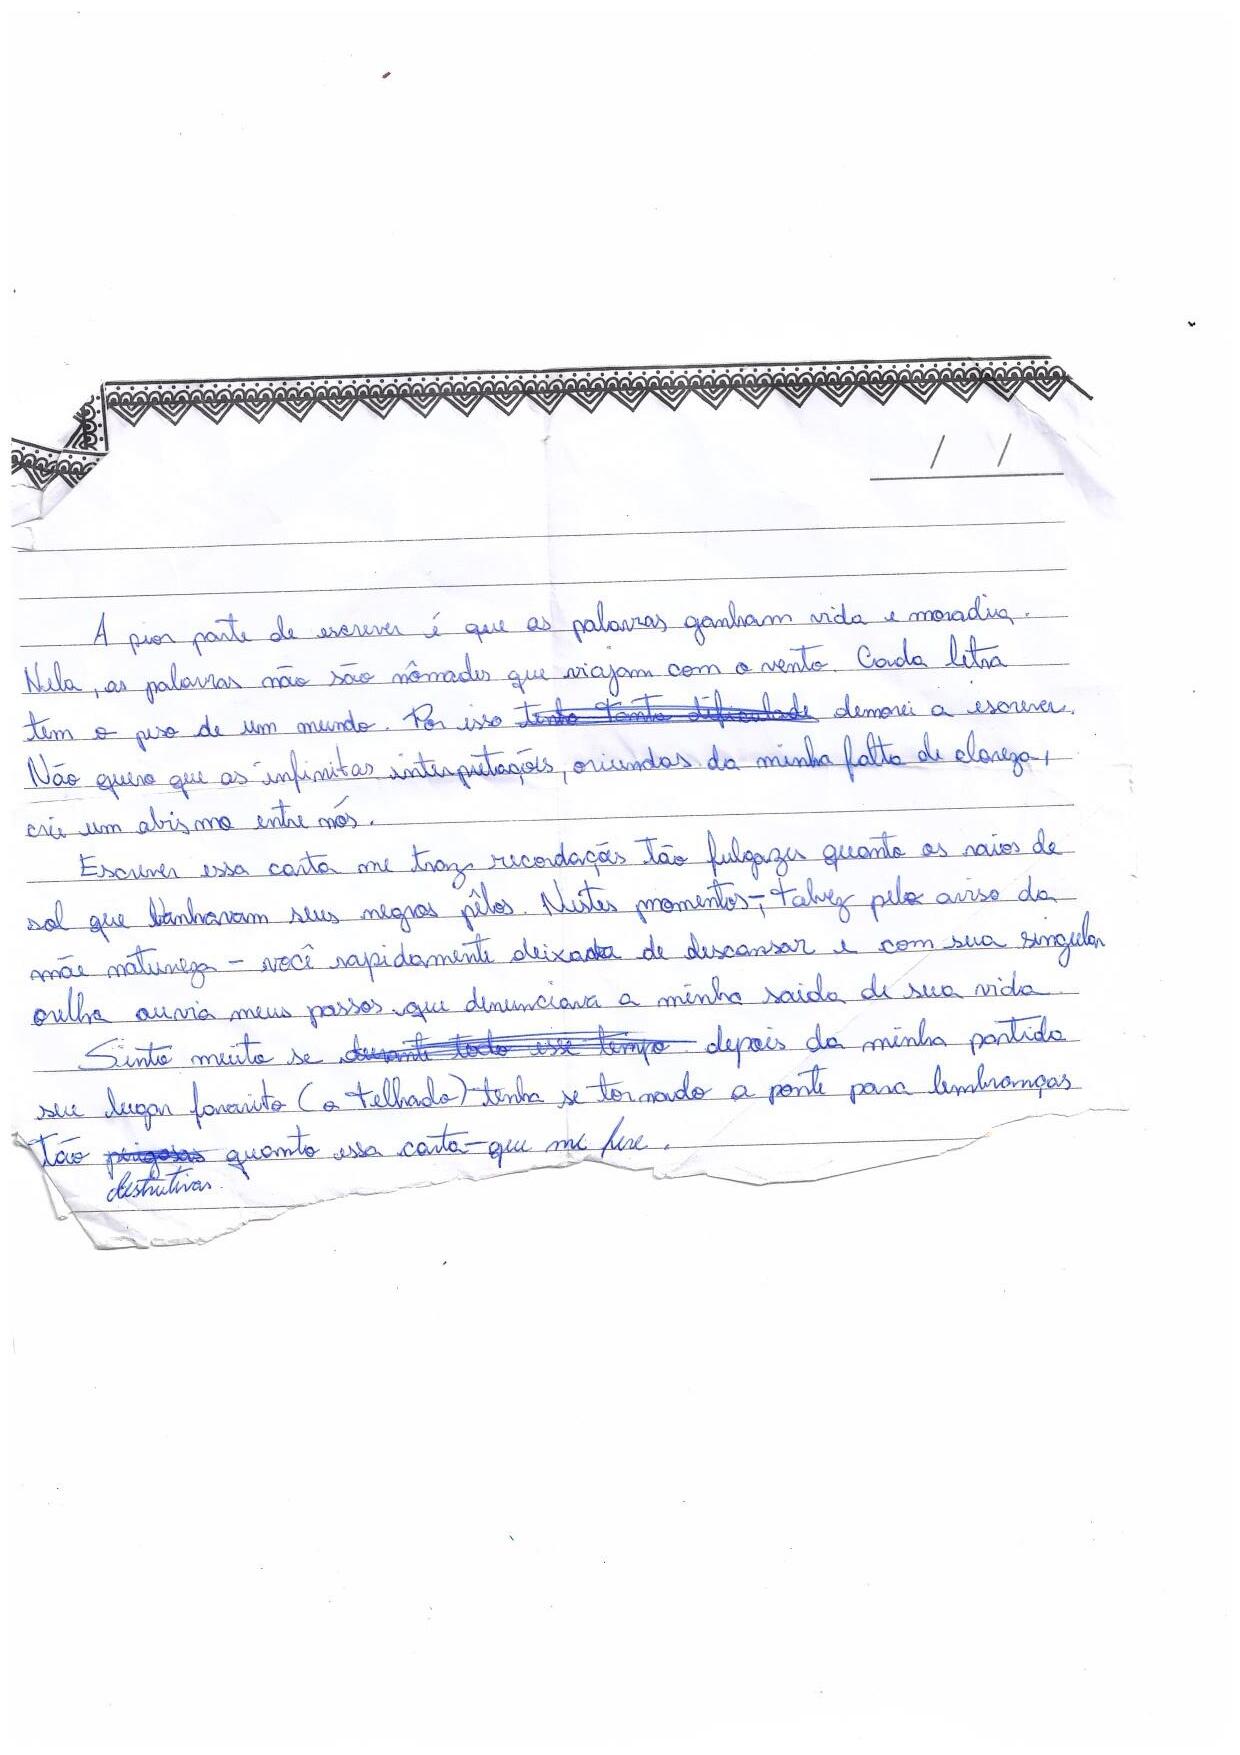 / /
A pior parte de escrever é que as palavras ganham vida e moradia.
Nela, as palavras não são nômades que viajam com o vento. Cada letra
tem o peso de um mundo. Por isso tenho tanta dificuldade demorei a escrever.
Não quero que as infinitas interpretações, oriundas da minha falta de clareza,
crie um abismo entre nós.
Escrever essa carta me traz recordações tão fulgazes quanto os raios de
sol que banhavam seus negros pêlos. Nestes momentos - talvez pelo aviso da
mãe natureza - você rapidamente deixava de descansar e com sua singular
orelha ouvia meus passos que denunciava a minha saida de sua vida
Sinto muito se durante todo esse tempo depois da minha partida
seu lugar favorito (o telhado) tenha se tornado a ponte para lembranças
tão perigosas quanto essa carta - que me fere.
destrutivas.